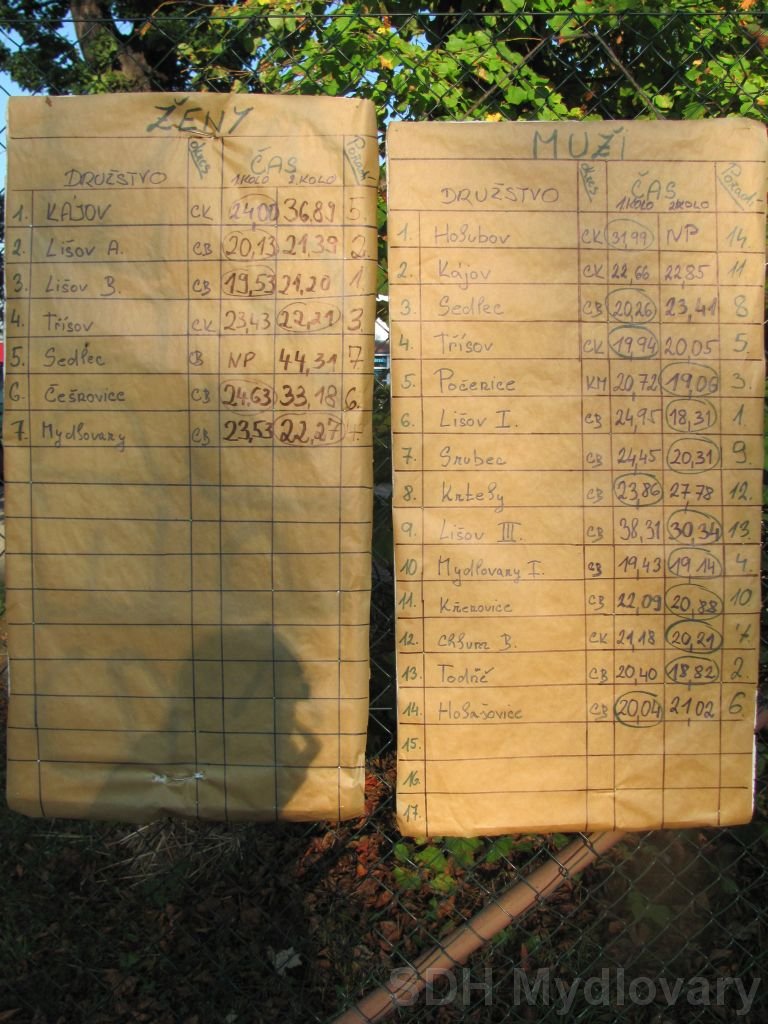 ŽENY
DRUŽSTVO okres ČAS Pořadí
1.KOLO 2.KOLO
1. KÁJOV CK 24,00 36,89 5.
2. Lišov A. CB 20,13 21,39 2.
3. Lišov B. CB 19,53 21,20 1.
4. Třísov CK 23,43 22,21 3.
5. Sedlec CB NP 44,31 7
6. Češnovice CB 24,63 33,18 6.
7. Mydlovary CB 23,53 22,27 4.
MUŽI
DRUŽSTVO okres ČAS Pořadí
1.KOLO 2.KOLO
1. Holubov CK 31,99 NP 14.
2. Kájov CK 22,66 22,85 11.
3. Sedlec CB 20,26 23,41 8
4. Třísov CK 19,94 20,05 5.
5. Počenice KM 20,72 19,06 3.
6. Lišov I. CB 24,95 18,31 1.
7. Srubec CB 24,45 20,31 9.
8. Krtely CB 23,86 27,78 12.
9. Lišov III. CB 38,31 30,34 13.
10. Mydlovary I. CB 19,43 19,14 4.
11. Křenovice CB 22,09 20,88 10
12. Chlum B. CK 21,18 20,21 7.
13. Todně CB 20,40 18,82 2.
14. Holašovice CB 20,04 21,02 6.
15.
16.
17.
SDH Mydlovary